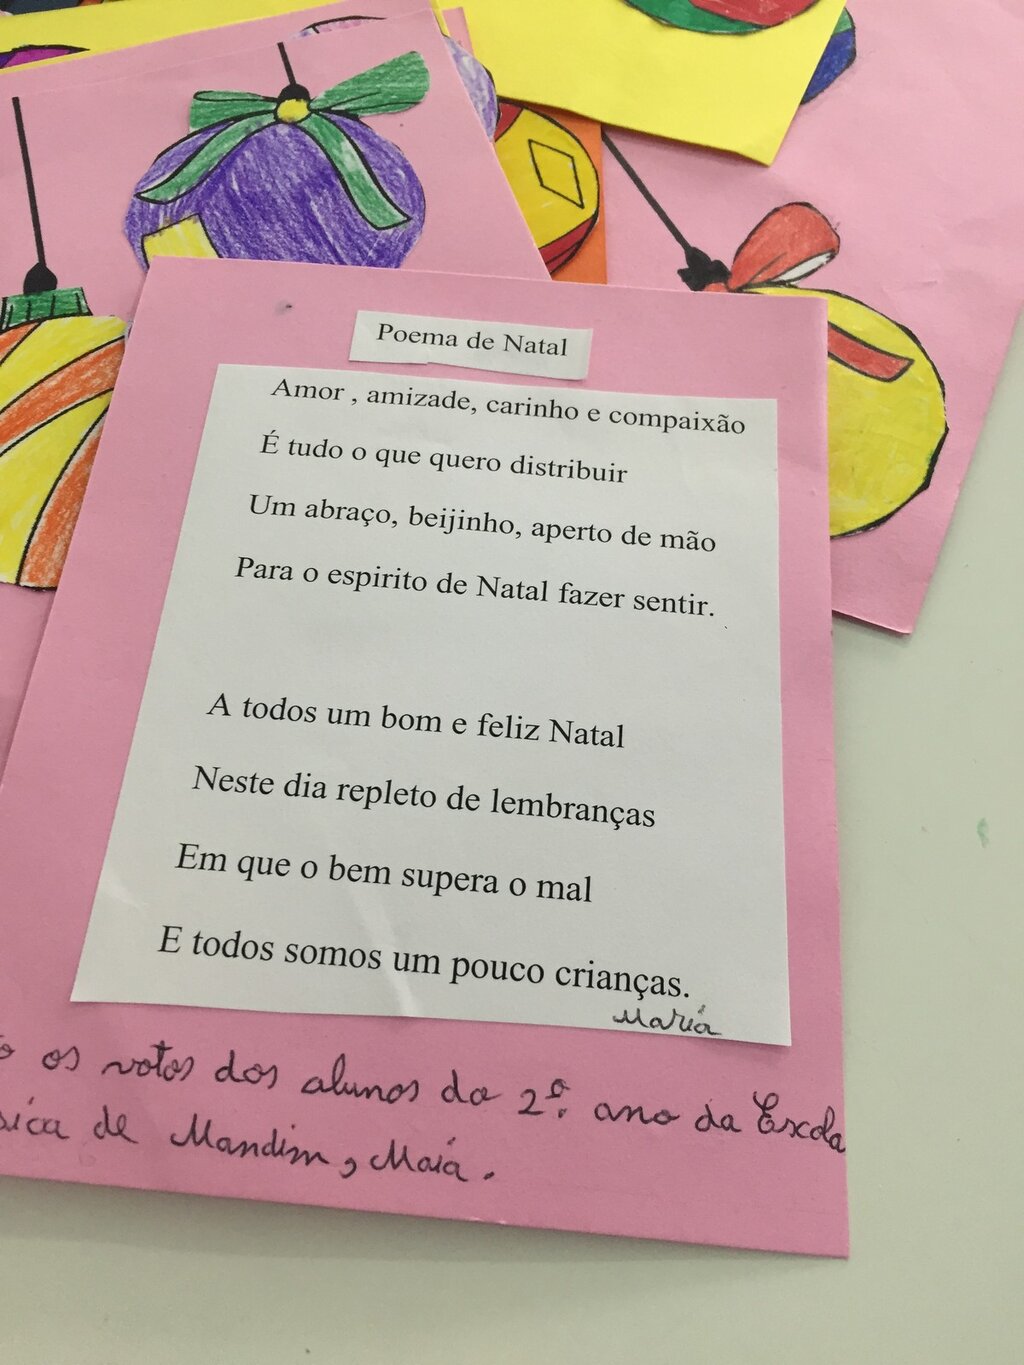 Poema de Natal
Amor , amizade, carinho e compaixão
É tudo o que quero distribuir
Um abraço, beijinho, aperto de mão
Para o espirito de Natal fazer sentir.
A todos um bom e feliz Natal
Neste dia repleto de lembranças
Em que o bem supera o mal
E todos somos um pouco crianças.
Maria
os votos dos alunos do 2º. ano da Escola
de Mandim, Maia.